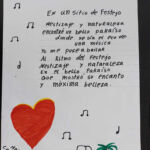 En un sitio de Festejo
Mestizaje y naturaleza
encontré un bello paraíso
donde se oía el eco de
una música
Yo me puse a bailar
Al ritmo del festejo
Mestizaje y naturaleza
En el bello Paraíso
Que mostró su encanto
y máxima belleza.